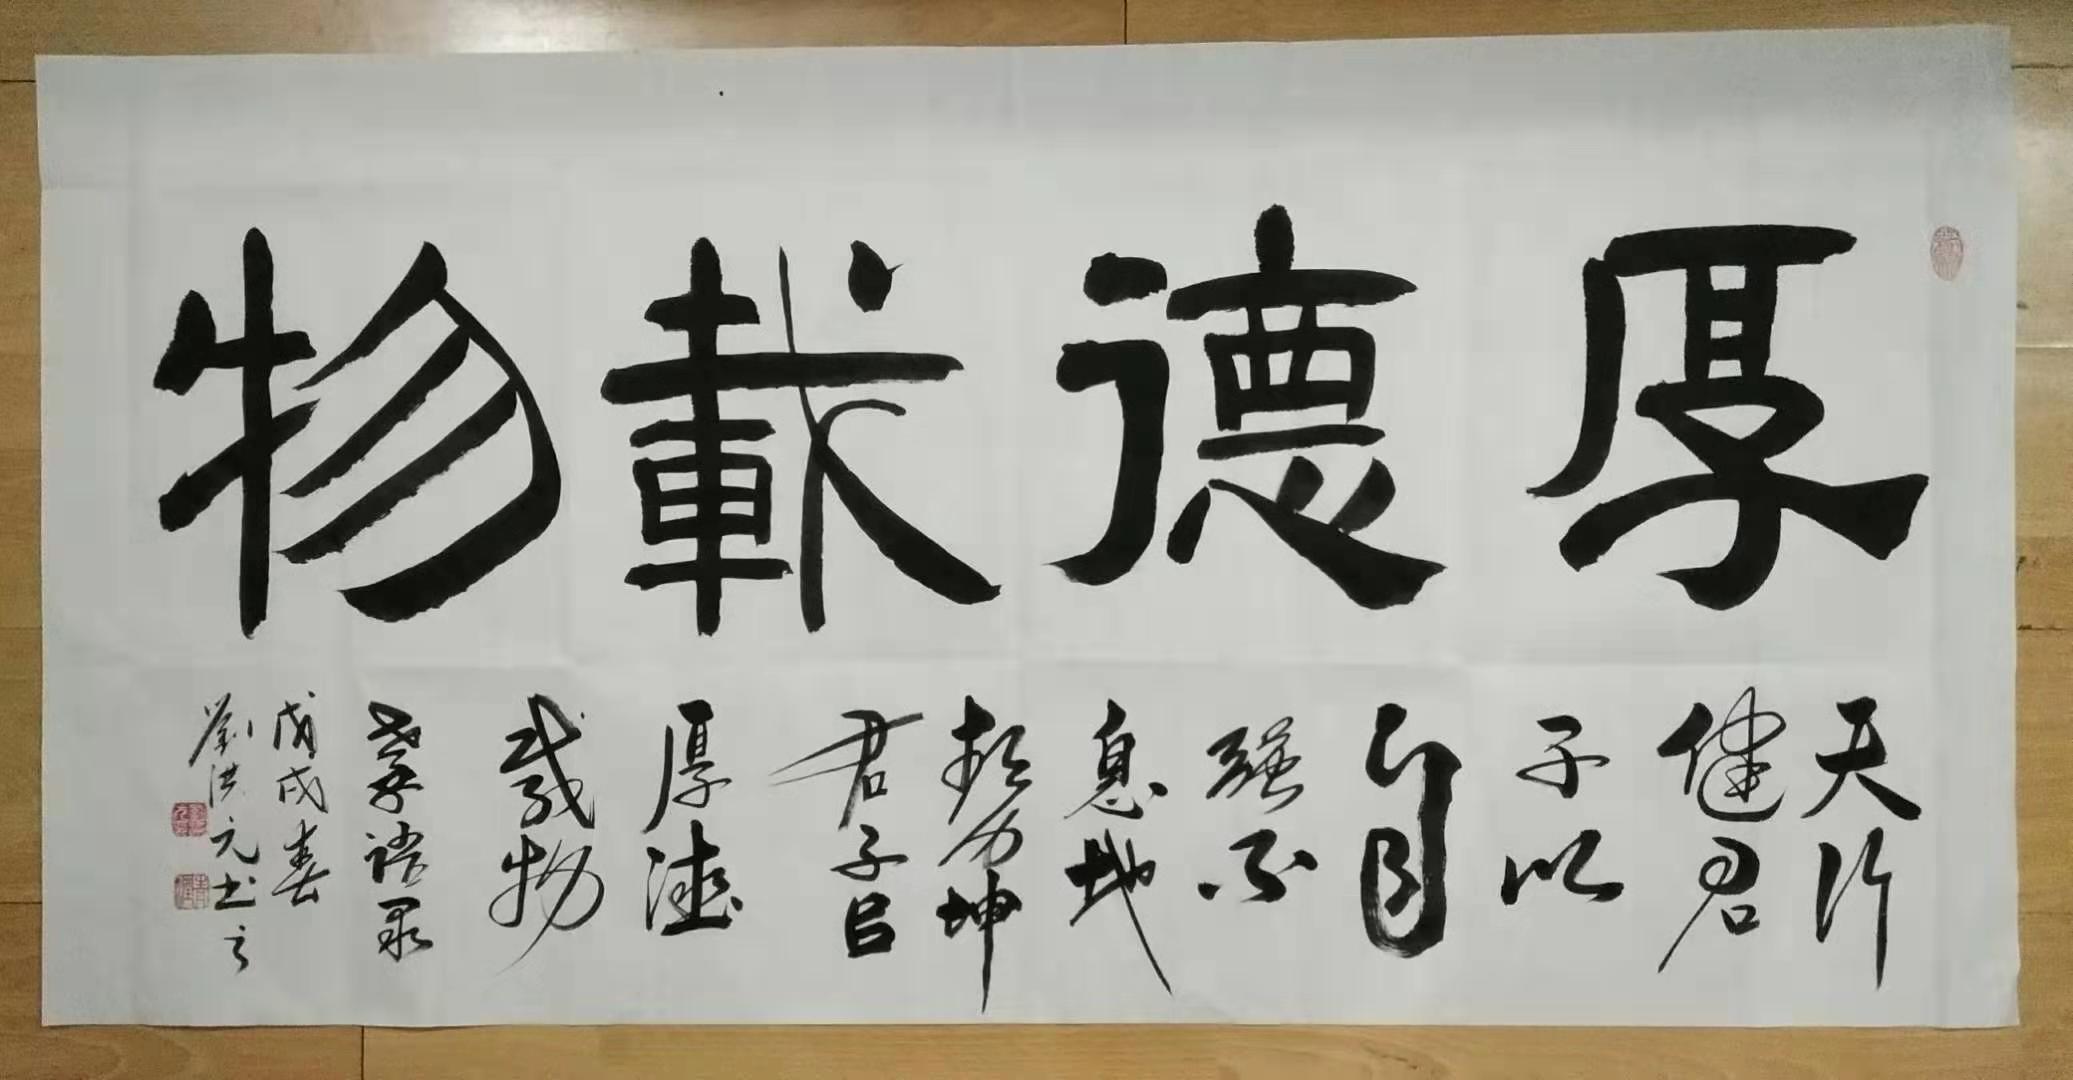 厚德載物
天行
健君
子以
自
强不
息地
勢坤
君子以
厚德
載物
戊戌春
劉洪元书之